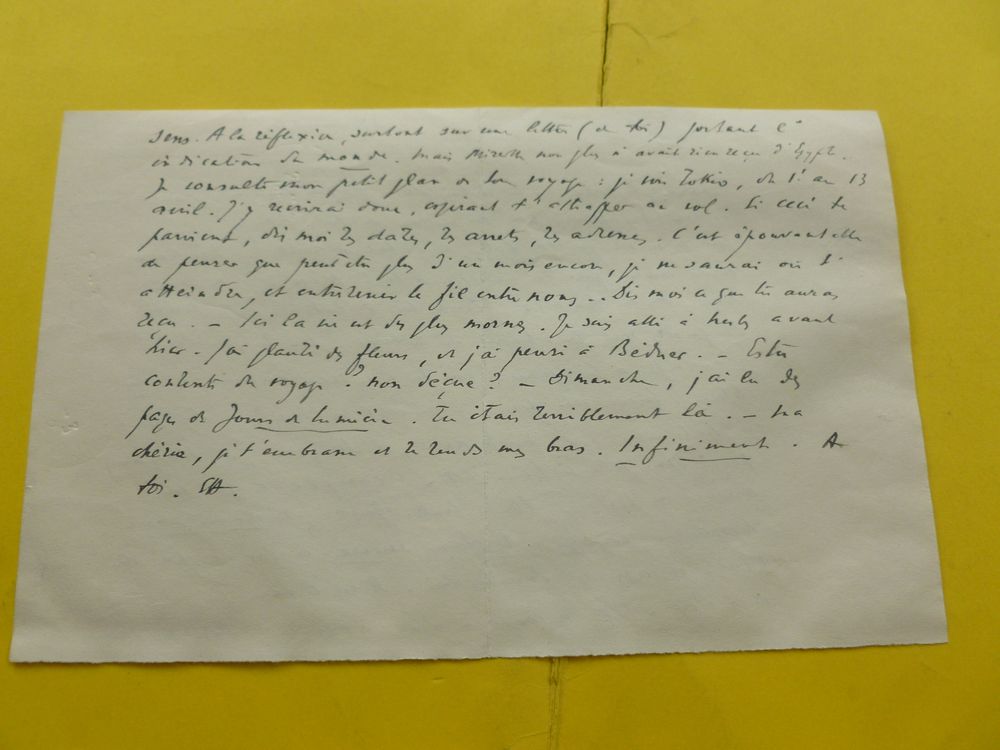 sens. A la réflexion, surtout sur une lettre (de toi) portant l'
indication du monde. Mais Mireille non plus n'avait rien reçu d'Egypte.
Je consulte mon petit plan de ton voyage : je vois Tokio, du 1er au 13
avril. J'y récrirai donc, espérant t'attraper au vol. Si ceci te
parvient, dis moi les dates, les arrêts, les adresses. C'est épouvantable
de penser que peut être plus d'un mois encore, je ne saurai où t'
atteindre, et entretenir le fil entre nous.. Dis moi ce que tu auras
reçu. – Ici la vie est des plus mornes. Je suis allé à avant
hier. J'ai planté des fleurs, et j'ai pensé à – Es tu
contente du voyage ? non déçue ? – Dimanche, j'ai lu des
pages de Jours de lumière. Tu étais terriblement là. – Ma
chérie, je t'embrasse et te tends mes bras. Infiniment. A
toi.